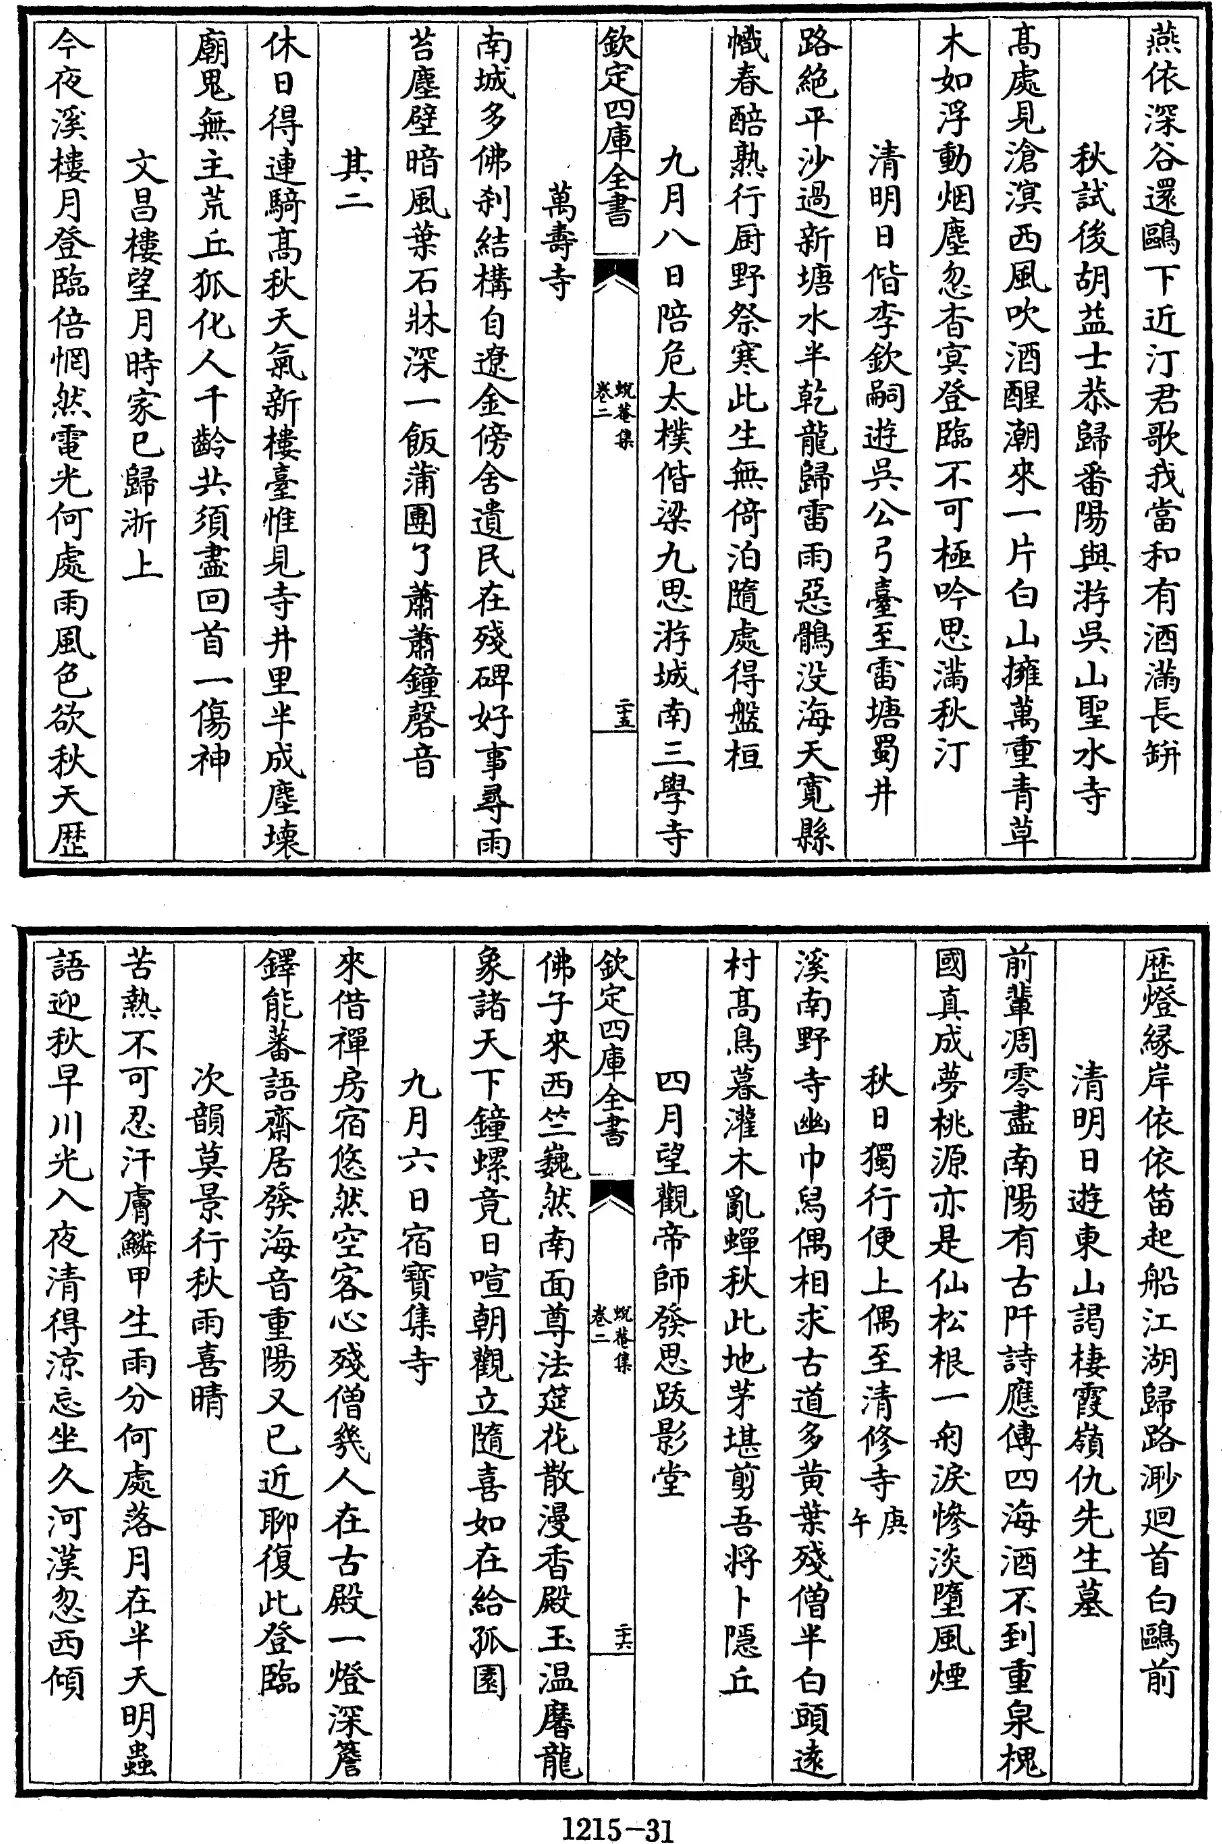 燕依深谷還鷗下近汀君歌我當和有酒滿長缾
秋試後胡益士恭歸番陽與游吳山聖水寺
髙處見滄溟西風吹酒醒潮來一片白山擁萬重青草
木如浮動烟塵忽杳冥登臨不可極吟思滿秋汀
清明日偕李欽嗣遊吳公弓臺至雷塘蜀井
路絶平沙過新塘水半乾龍歸雷雨惡鶻没海天寛縣
幟春醅熟行厨野祭寒此生無倚泊隨處得盤桓
九月八日陪危太樸偕梁九思游城南三學寺
欽定四庫全書
蛻菴集
卷二
二十五
萬壽寺
南城多佛刹結構自遼金傍舍遺民在殘碑好事尋雨
苔塵壁暗風葉石牀深一飯蒲團了蕭蕭鐘磬音
其二
休日得連騎髙秋天氣新樓臺惟見寺井里半成塵壊
廟鬼無主荒丘狐化人千齡共須盡回首一傷神
文昌樓望月時家已歸浙上
今夜溪樓月登臨倍惘然電光何處雨風色欲秋天歴
歴燈緣岸依依笛起船江湖歸路渺廻首白鷗前
清明日遊東山謁棲霞嶺仇先生墓
前輩凋零盡南陽有古阡詩應傳四海酒不到重泉槐
國真成夢桃源亦是仙松根一掬淚慘淡墮風煙
秋日獨行便上偶至清修寺庚午
溪南野寺幽巾舄偶相求古道多黄葉殘僧半白頭遠
村髙鳥暮灌木亂蟬秋此地茅堪剪吾將卜隱丘
四月望觀帝師發思跋影堂
欽定四庫全書
蛻菴集
卷二
二十六
佛子來西竺巍然南面尊法筵花散漫香殿玉温黁龍
象諸天下鐘螺竟日喧朝觀立隨喜如在給孤園
九月六日宿寳集寺
來借禪房宿悠然空客心殘僧幾人在古殿一燈深簷
鐸能蕃語齋居發海音重陽又已近聊復此登臨
次韻莫景行秋雨喜晴
苦熱不可忍汗膚鱗甲生雨分何處落月在半天明蟲
語迎秋早川光入夜清得凉忘坐久河漢忽西傾
1215-31